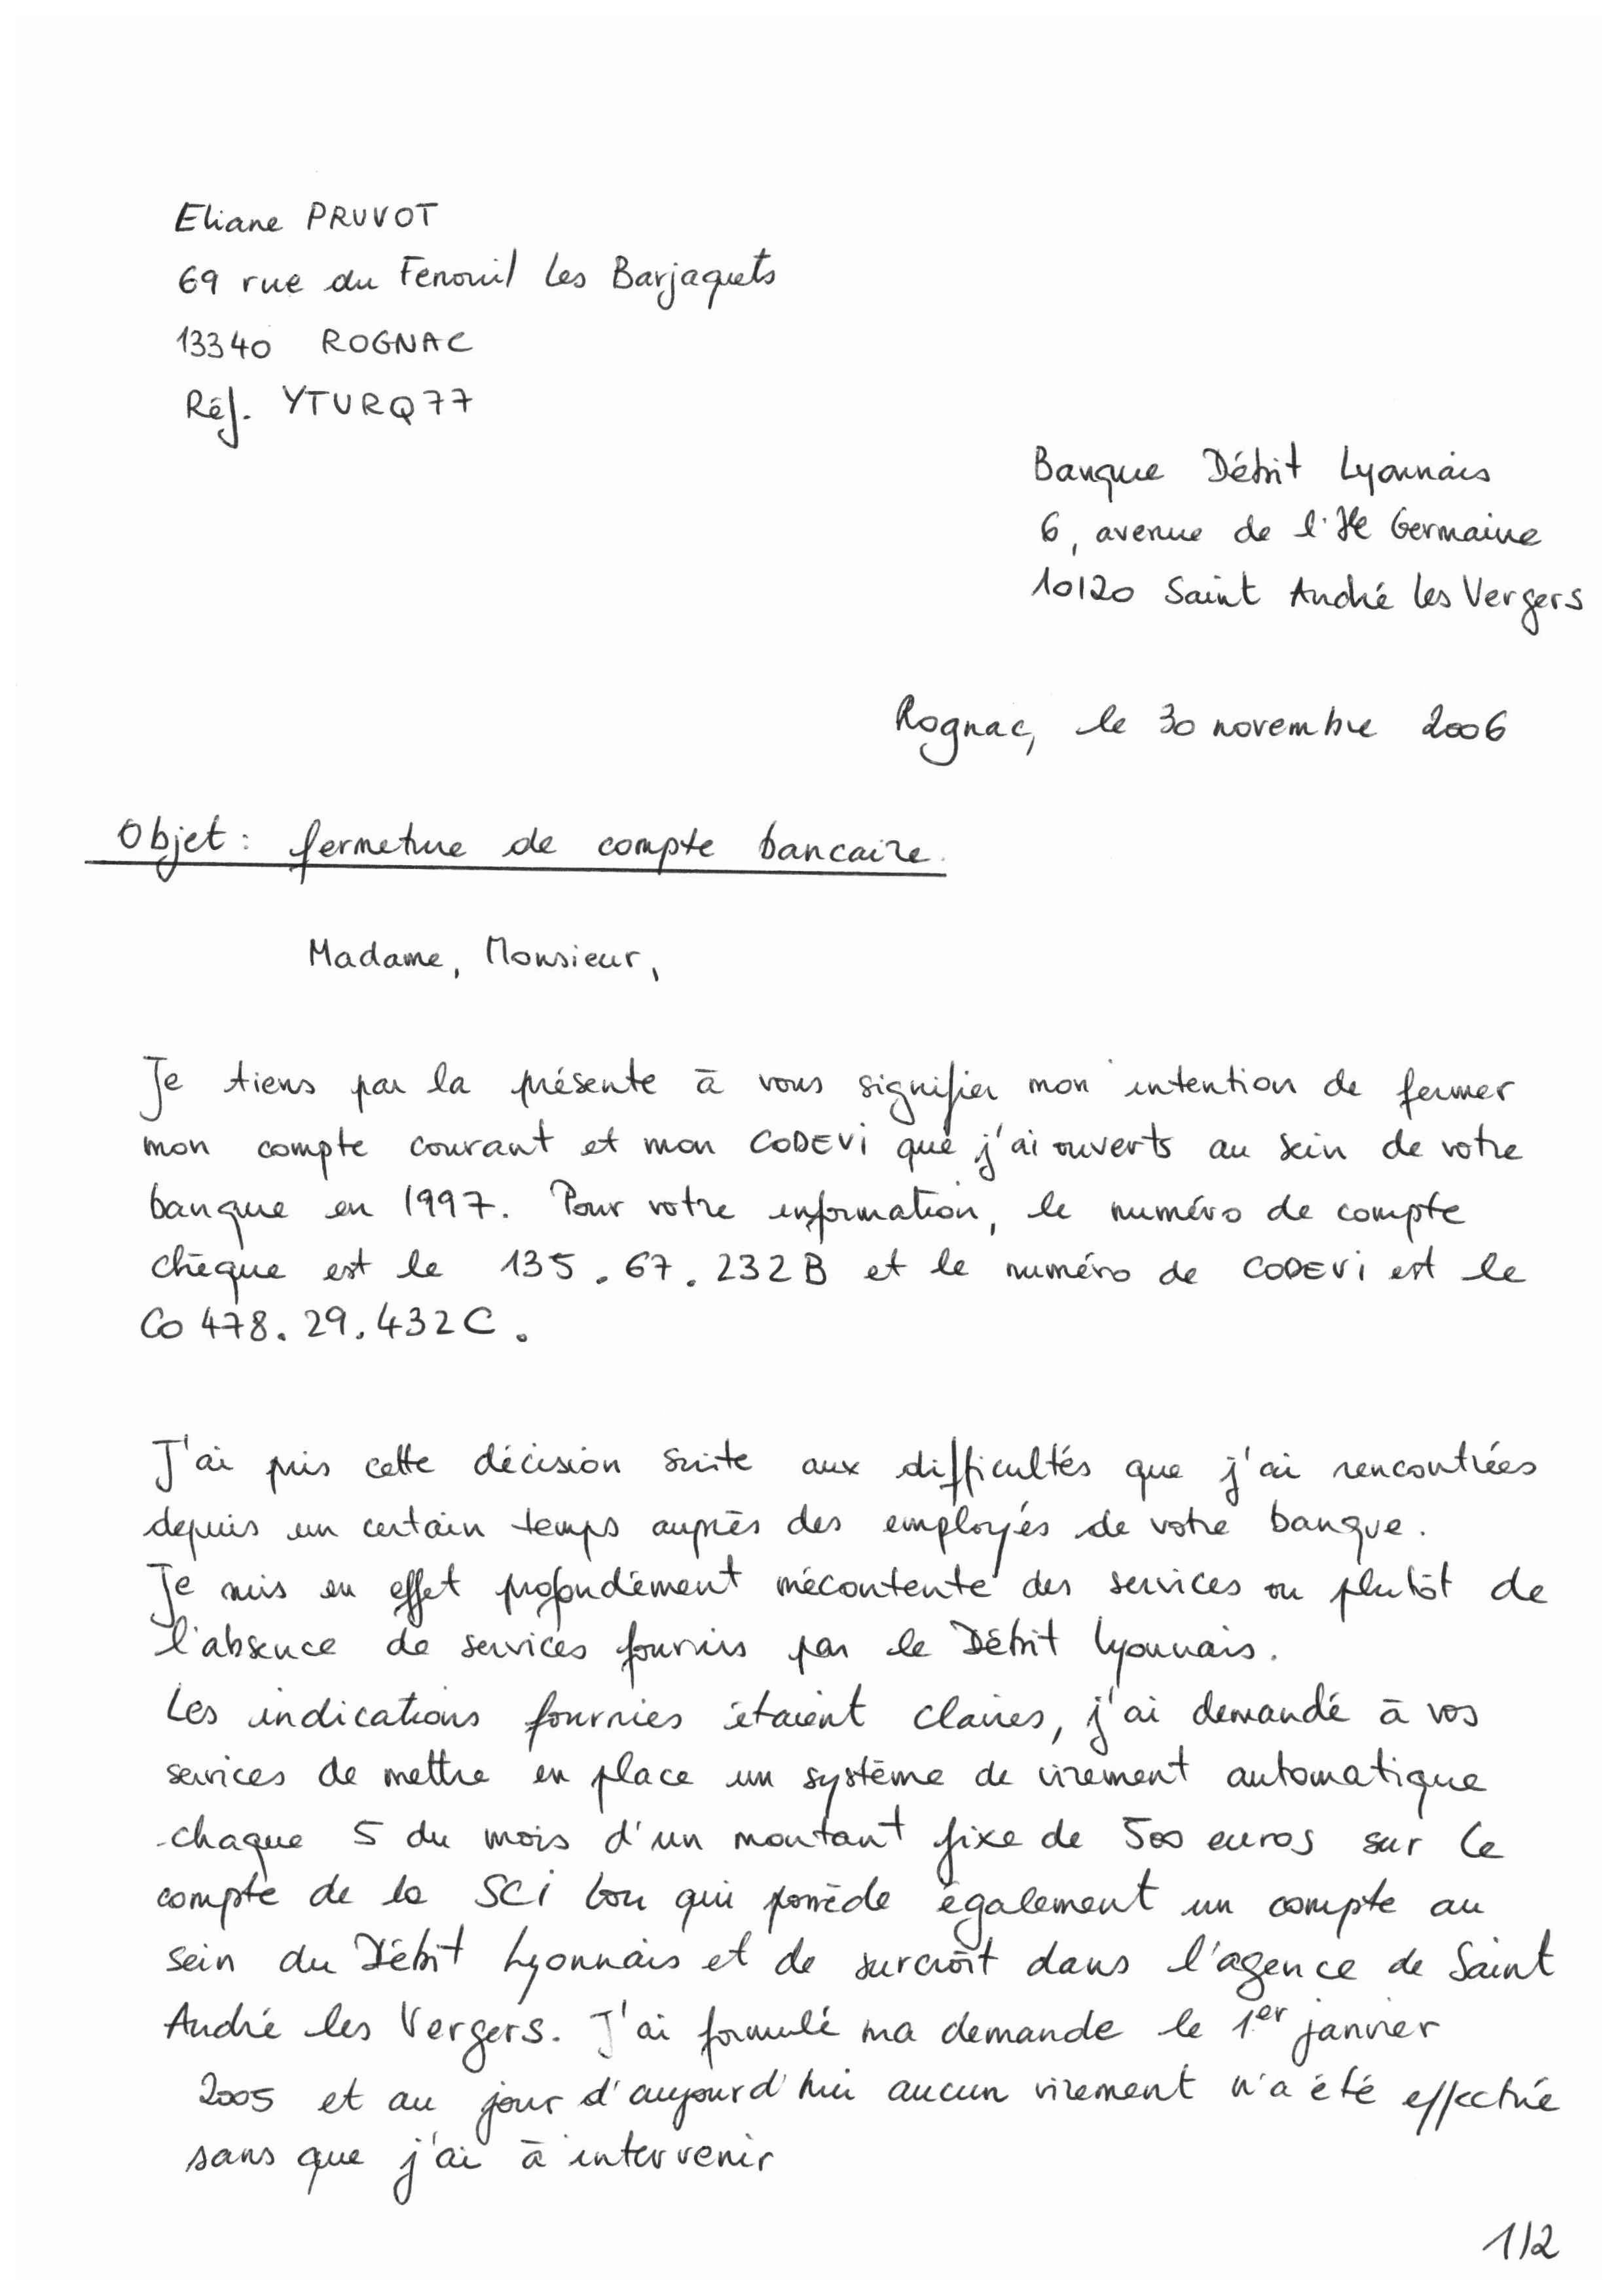 Eliane PRUVOT
69 rue du Fenouil Les Barjaquets
13340 ROGNAC
Réf. YTURQ77
Banque Débit Lyonnais
6, avenue de l'Ile Germaine
10120 Saint André les Vergers
Rognac, le 30 novembre 2006
Objet : fermeture de compte bancaire.
Madame, Monsieur,
Je tiens par la présente à vous signifier mon intention de fermer
mon compte courant et mon CODEVI que j'ai ouverts au sein de votre
banque en 1997. Pour votre information, le numéro de compte
chèque est le 135.67.232B et le numéro de CODEVI est le
Co 478.29.432C.
J'ai pris cette décision suite aux difficultés que j'ai rencontrées
depuis un certain temps auprès des employés de votre banque.
Je suis en effet profondément mécontente des services ou plutôt de
l'absence de services fournis par le Débit Lyonnais.
Les indications fournies étaient claires, j'ai demandé à vos
services de mettre en place un système de virement automatique
chaque 5 du mois d'un montant fixe de 500 euros sur le
compte de la SCI Lou qui possède également un compte au
sein du Débit Lyonnais et de surcroît dans l'agence de Saint
André les Vergers. J'ai formulé ma demande le 1er janvier
2005 et au jour d'aujourd'hui aucun virement n'a été effectué
sans que j'ai à intervenir
1/2